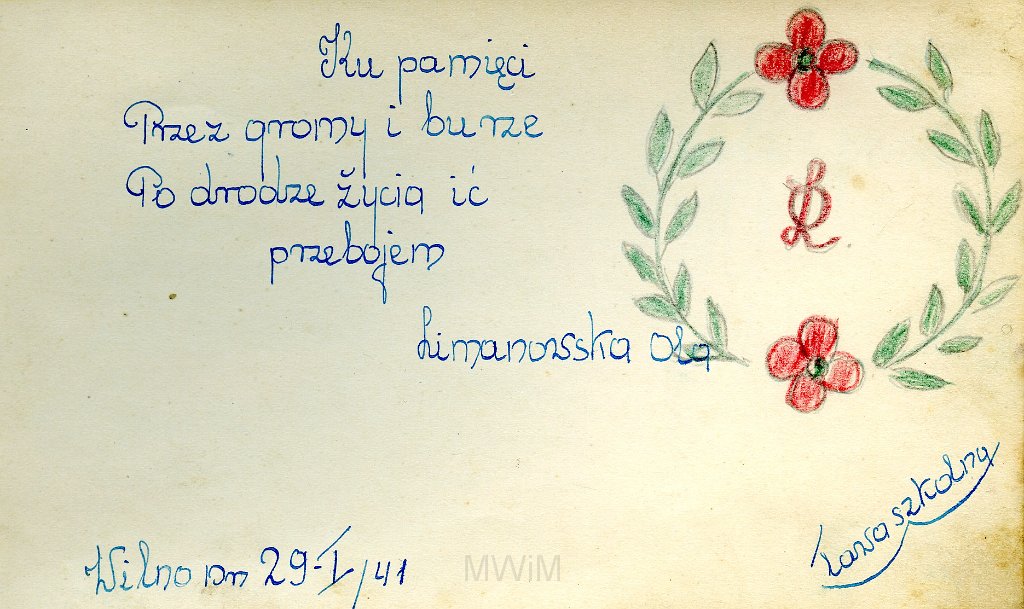 Ku pamięci
Przez gromy i burze
Po drodze życia ić
przebojem
Limanowska Ola
Wilno dn 29-I/41
Ława szkolny
MWiM